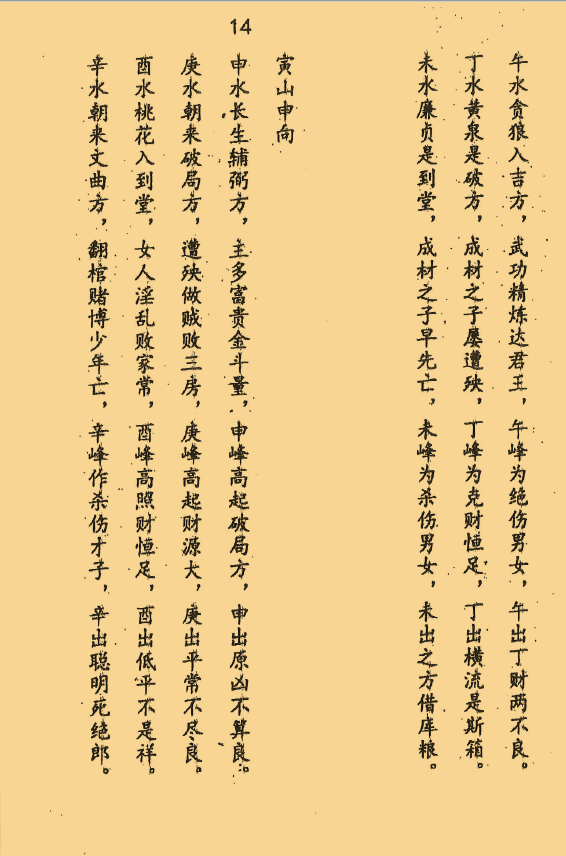 14
午水贪狼入吉方，武功精炼达君王，午峰为绝伤男女，午出丁财两不良。
丁水黄泉是破方，成材之子屡遭殃，丁峰为克财恒足，丁出横流是斯箱。
未水廉贞是到堂，成材之子早先亡，未峰为杀伤男女，未出之方借库粮。
寅山申向
申水长生辅弼方，主多富贵金斗量，申峰高起破局方，申出原凶不算良。
庚水朝来破局方，遭殃做贼败三房，庚峰高起财源大，庚出平常不尽良。
酉水桃花入到堂，女人淫乱败家常，酉峰高照财恒足，酉出低平不是祥。
辛水朝来文曲方，翻棺赌博少年亡，辛峰作杀伤才子，辛出聪明死绝郎。